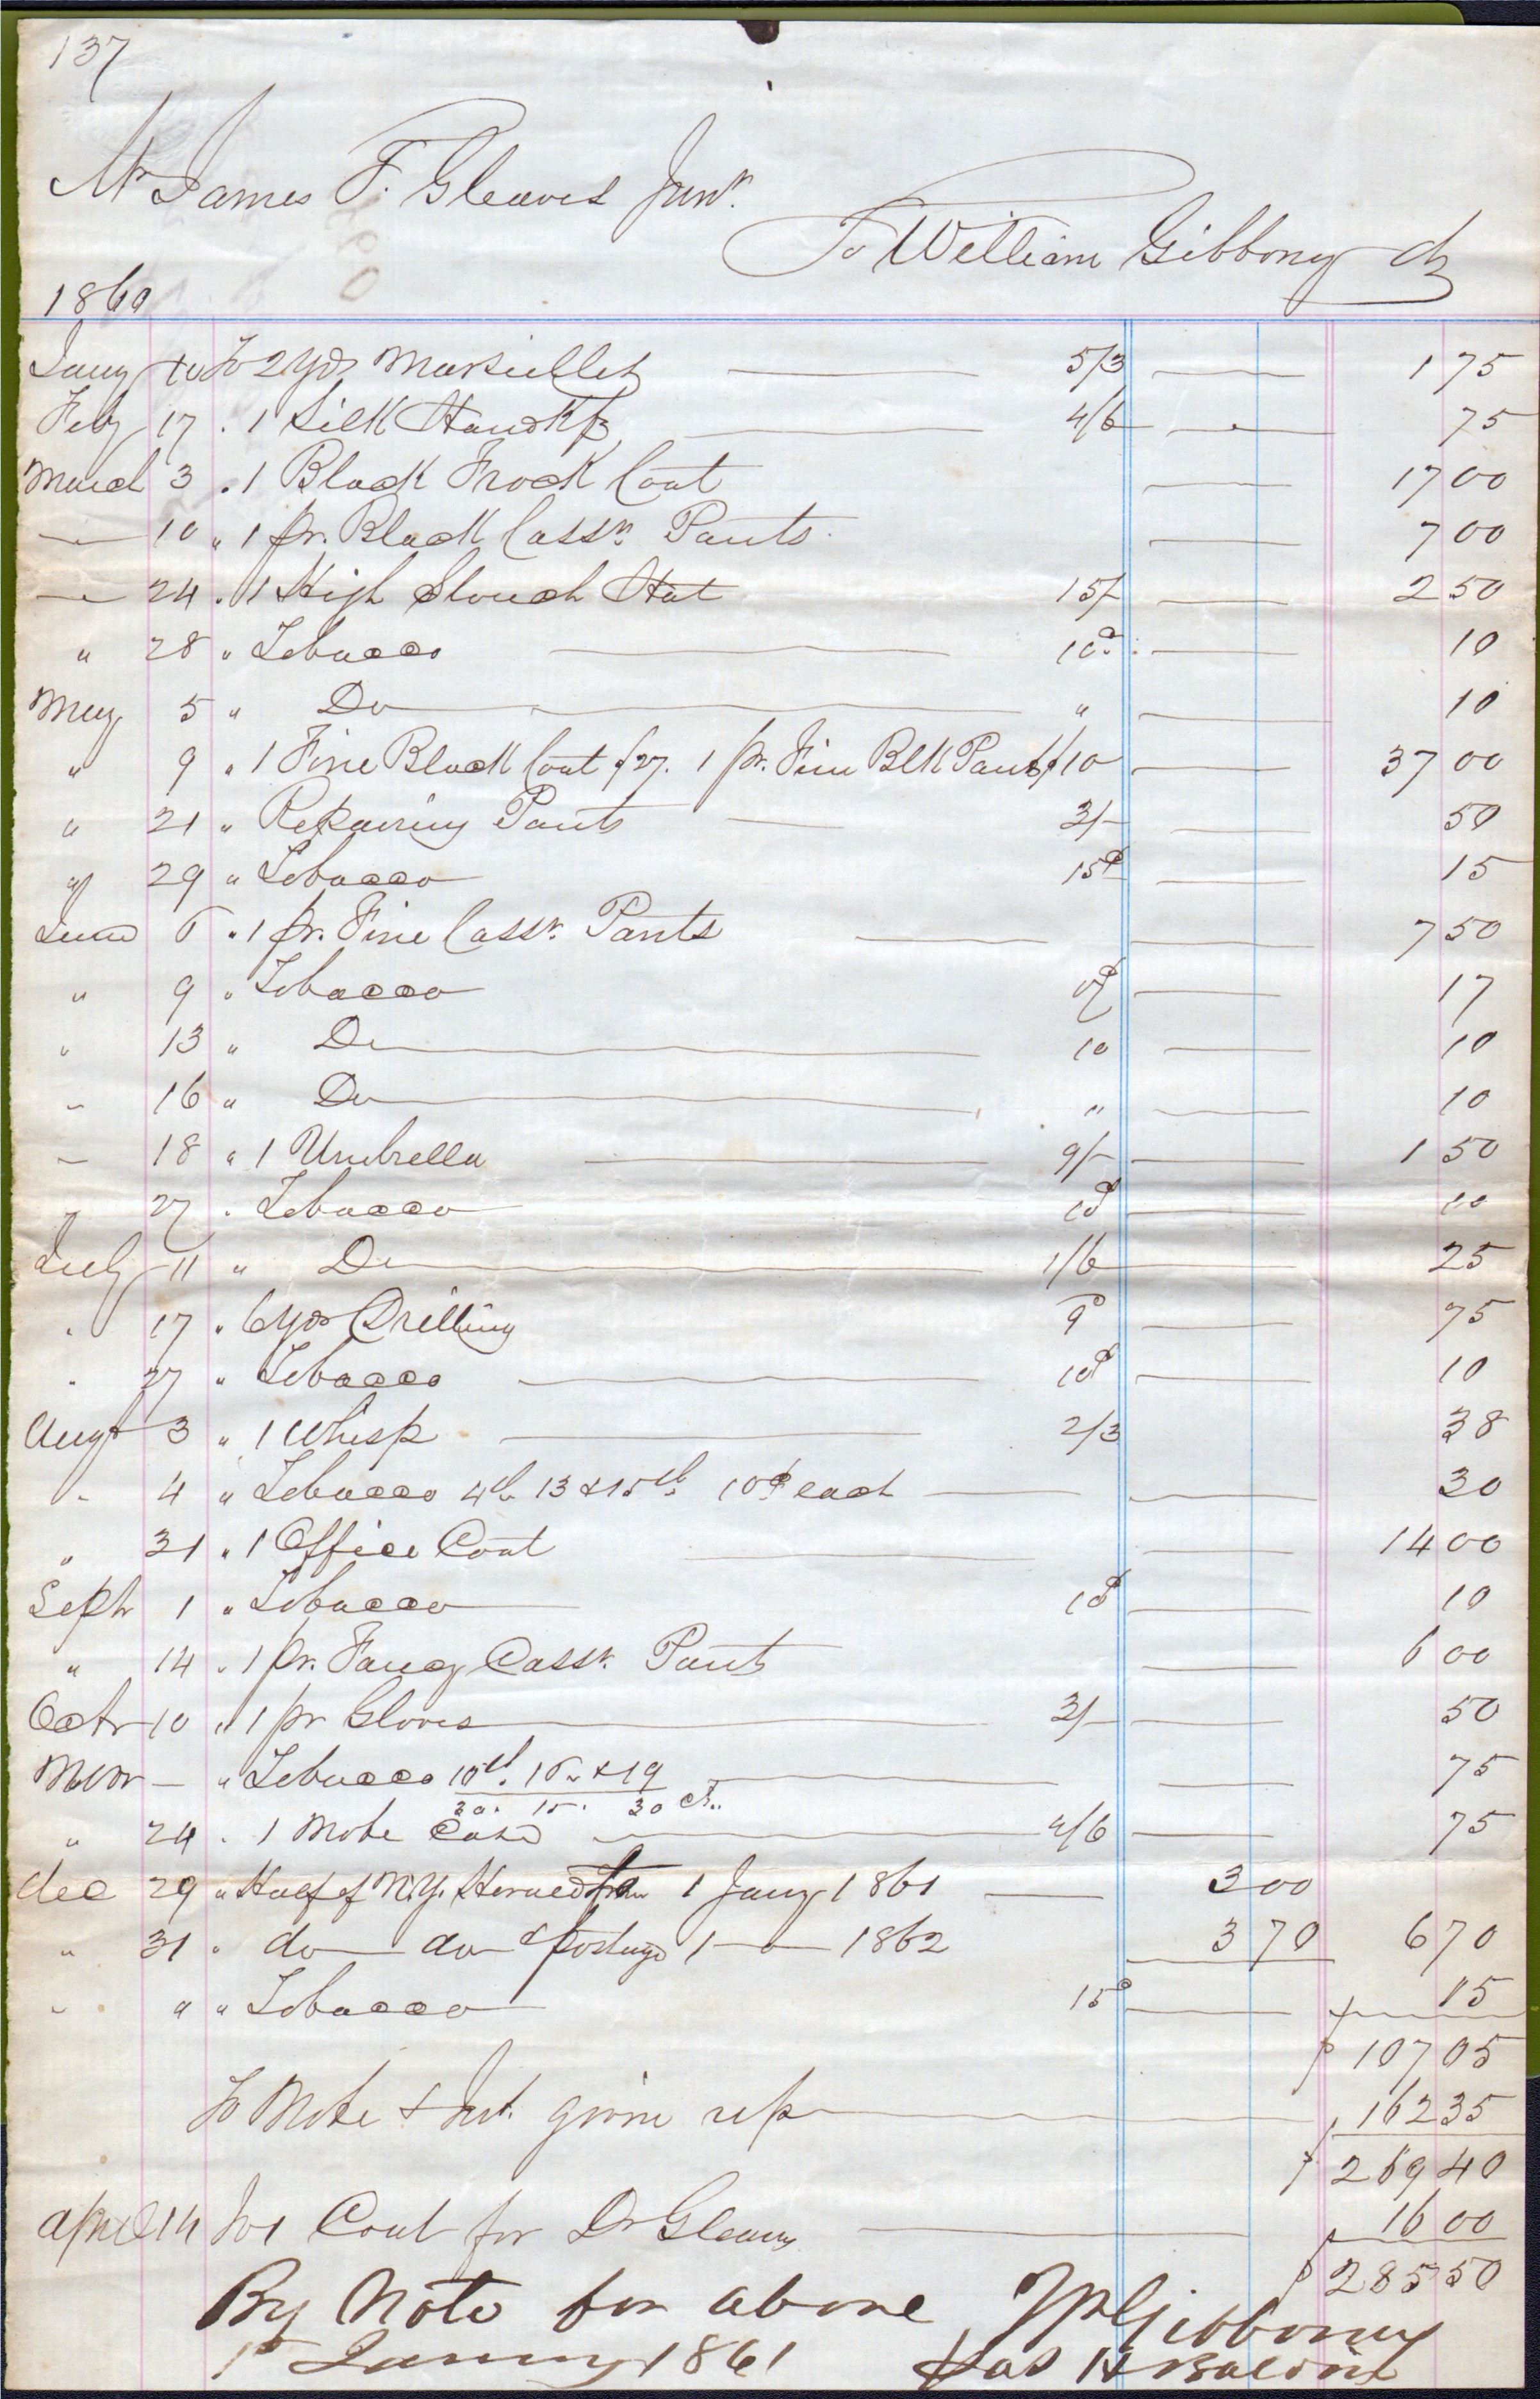 137
Mr James F. Gleaves Junr.
To William Gibboney Dr
1860
Jany 10 To 2 yds Marseilles 5/3 1 75
Feby 17 " 1 Silk Handkf 4/6 75
March 3 " 1 Black Frock Coat 17 00
— 10 " 1 pr. Black Cassr. Pants 7 00
— 24 " 1 High Slouch Hat 15/ 2 50
" 28 " Tobacco 10d 10
May 5 " Do " 10
" 9 " 1 Fine Black Coat $27. 1 pr. Fine Blk Pants $10 37 00
" 21 " Repairing Pants 3/- 50
" 29 " Tobacco 15d 15
June 6 " 1 pr. Fine Cassr. Pants 7 50
" 9 " Tobacco 17
" 13 " Do 10 10
" 16 " Do " 10
" 18 " 1 Umbrella 9/- 1 50
" 27 " Tobacco 10d 10
July 11 " Do 1/6 25
" 17 " 6 yds Drilling 9d 75
" 27 " Tobacco 10d 10
Augt 3 " 1 Whisp 2/3 38
" 4 " Tobacco 4th 13 & 15th 10d each 30
" 31 " 1 Office Coat 14 00
Septr 1 " Tobacco 10d 10
" 14 " 1 pr. Fancy Cassr. Pants 6 00
Octr 10 " 1 pr Gloves 3/- 50
Novr — " Tobacco 10th. 16 & 19 75
30. 15. 30 cts.
" 24 " 1 Note Case 4/6 75
Dec 29 " Half of N.Y. Herald to 1 Jany 1861 3 00
" 31 " do do & postage 1 — 1862 3 70 6 70
" " " Tobacco 15d 15
$ 107 05
To Note & Int. given up 162 35
$ 269 40
April 14 To 1 Coat for Dr Gleaves 16 00
$ 285 50
By Note for above Wm Gibboney
1st January 1861